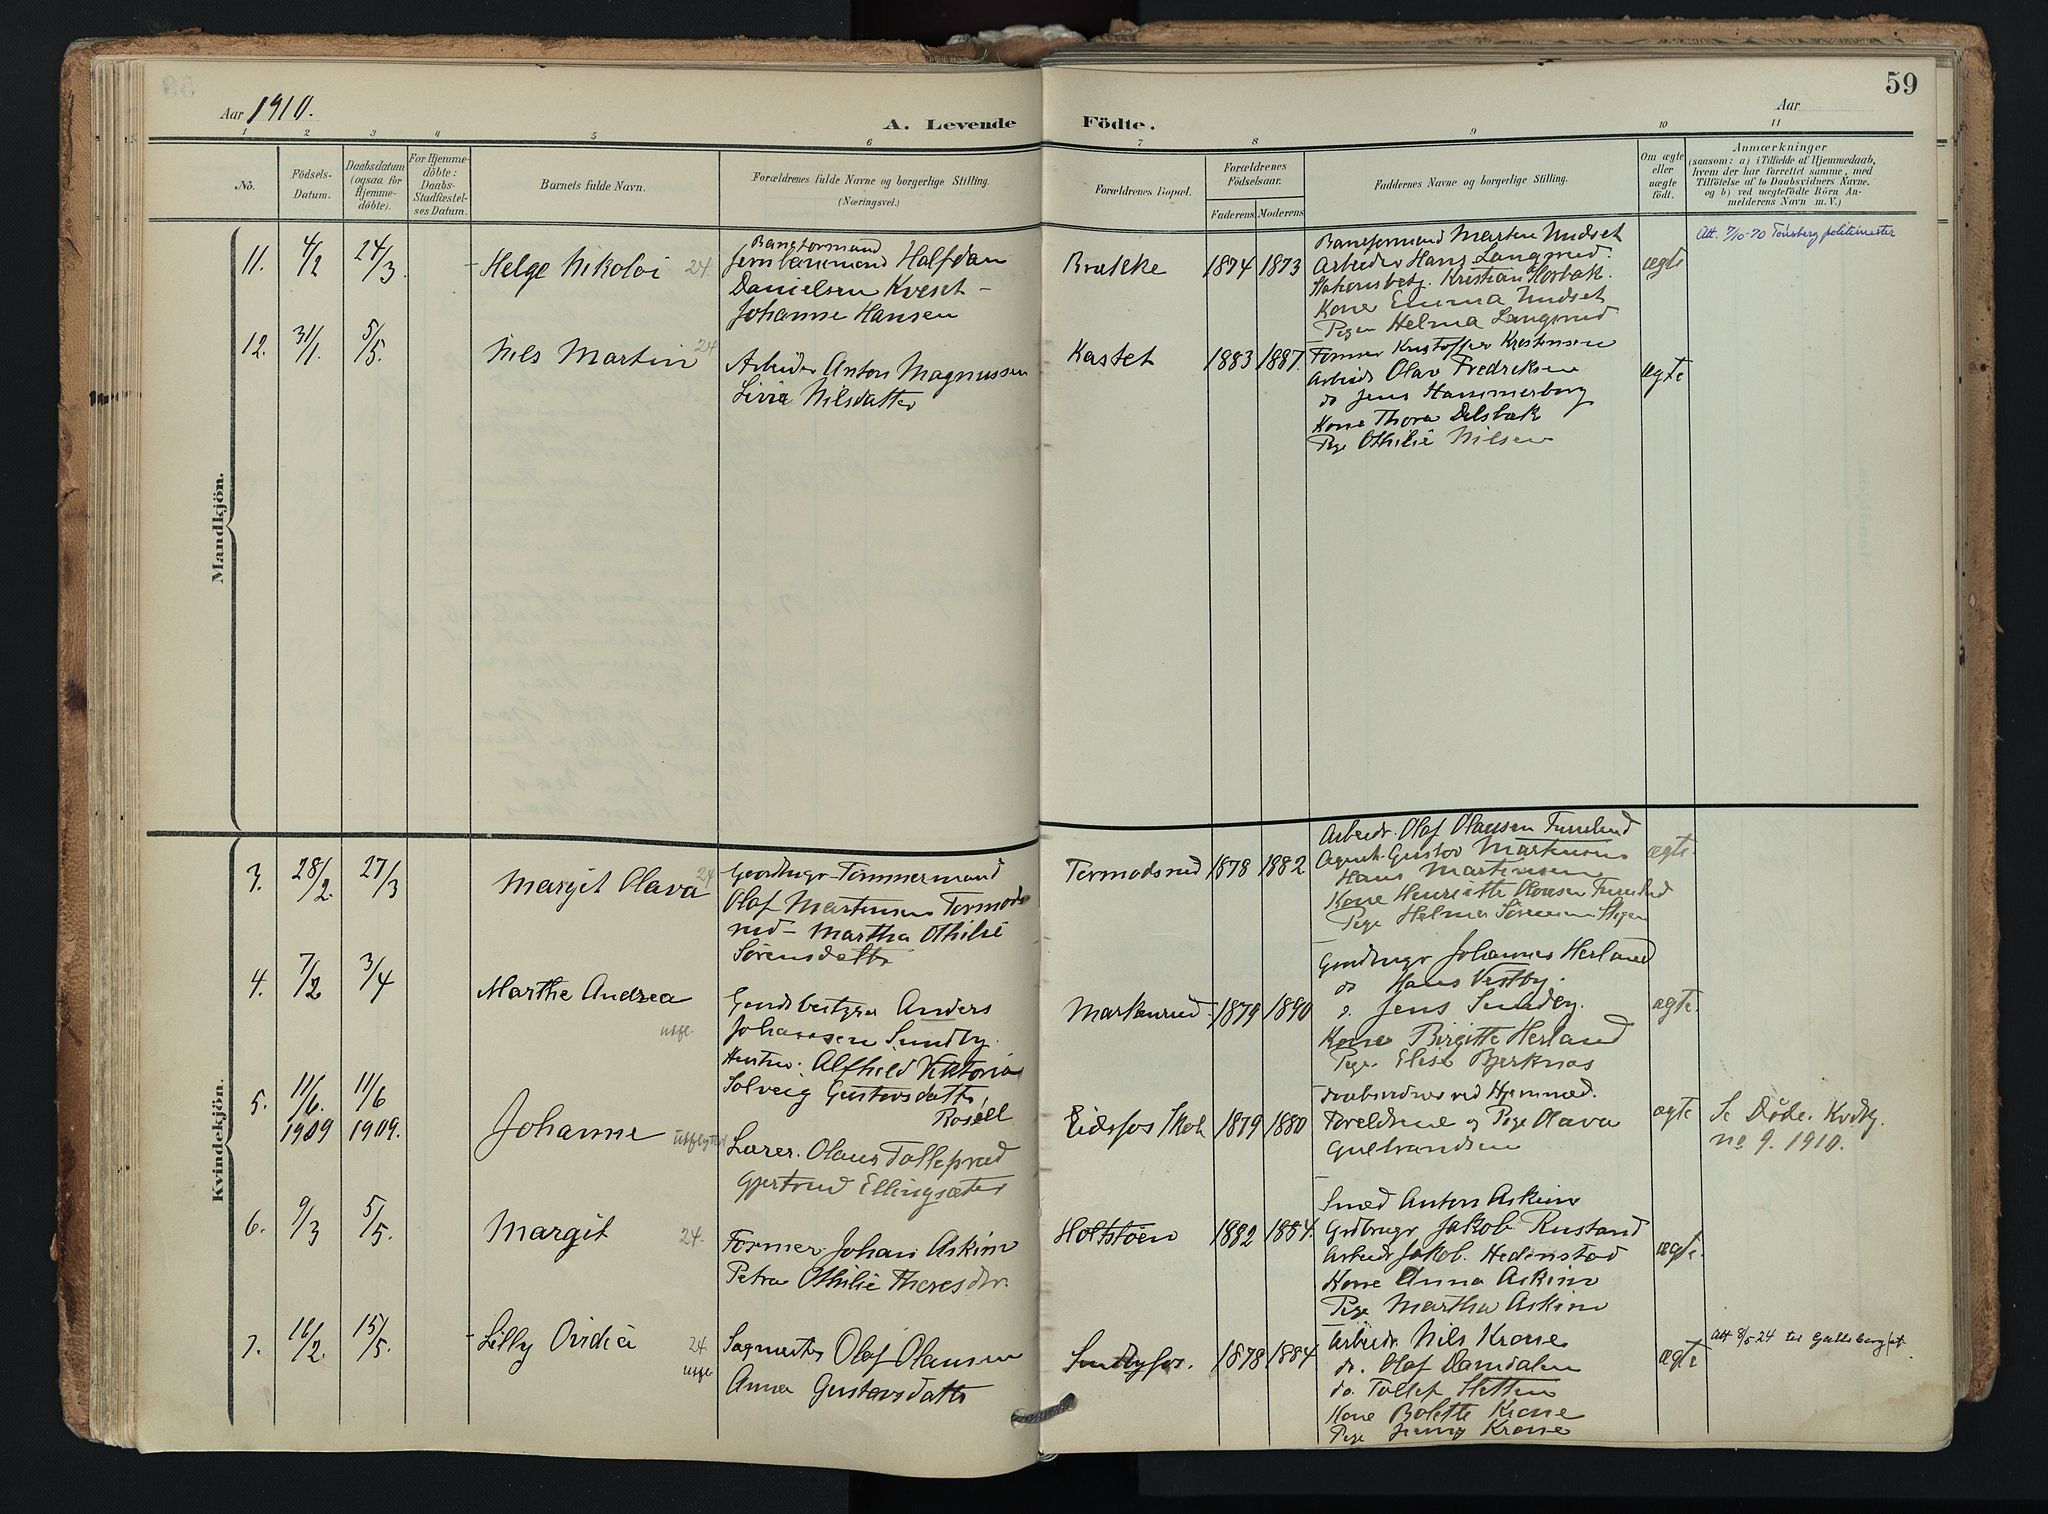 59
Aar 1910.
A. Levende Födte.
Aar
1 2 3 4 5 6 7 8 9 10 11
No.
Födsels-Datum.
Daabsdatum (ogsaa for Hjemme-döbte).
For Hjemme-döbte: Daabs-Stadfæstel-ses Datum.
Barnets fulde Navn.
Forældrenes fulde Navne og borgerlige Stilling.
(Næringsvei.)
Forældrenes Bopæl.
Forældrenes Födselsaar.
Faderens Moderens
Faddernes Navne og borgerlige Stilling.
Om ægte eller uægte födt.
Anmærkninger
(saasom: a) i Tilfælde af Hjemmedaab,
hvem der har forrettet samme, med
Tilföielse af to Daabsvidners Navne,
og b) ved uægtefödte Börn An-
melderens Navn m. V.)
Mandkjön.
11. 4/2 24/3. Helge Nikolai 24.
Baneformand
Halfdan
Danielsen Kveset -
Johanne Hansen
Brække 1874 1873
Baneformand Martin Undset
Arbeider Hans Langerud.
Stationsbetj. Kristian Horbæk.
Kone Emma Undset
Pige Helma Langerud
ægte
Att. 7/10-70 Tönsberg politimester
12. 31/1. 5/5. Nils Martin 24
Arbeider Anton Magnussen
Nilsdatter
Kastet 1883 1887.
Former Kristoffer Kristensen
Arbeider Olav Fredriksen
do Jens Hammerborg
Kone Thora Delsbæk
Pige Othilie Nilsen
ægte
Kvindekjön.
3. 28/2. 27/3 Margit Olava 24
Gaardbruger Tømmermand
Olaf Martinsen Tormods
rud - Martha Othilie
Sörensdatter
Tormodsrud 1878 1882
Arbeidr. Olaf Olausen Fururlund
Agent. Gustav Martinsen
Hans Martinsen
Kone Henriette Olausen
Pige Helma Sörensen
ægte
4. 7/2 3/4 Marthe Andrea utfl.
Gaardsbestyrer Anders
Johannsen Sundby.
Hustru: Alfhild Viktoria
Solveig Gustavsdatter
Rosell
Markerud 1879 1890
Gaardbruger Johannes Herland
do Hans Vestby.
d. Jens Sundby.
Kone Birgitte Herland
Pige. Elise Bjerknæs
ægte.
5. 11/6. 1909 11/6 1909. Johanne utflyttet
Lærer. Olaus Tollefsrud
Gjertrud Ellingsæter
Eidsfos Skole 1879 1880
Daabsvidner ved Hjemmed.
Foreldrene og Pige Olava
Gulbrandsen
ægte
Se Döde. Kvdkj.
no 9. 1910.
6. 9/3 5/5. Margit 24.
Former. Johan Askim
Petra Othilie Theresdtr.
Holtstöen 1882 1884.
Smed Anton Askim
Grdbruger Jakob Rustand
Arbeider Jakob. Hedenstad
Kone Anna Askim
Pige Martha Askim
ægte.
7. 15/5. Lilly Ovidia 24. utfl
Sagmester Olaf Olausen
Anna Gustavsdatter
Sundbyfos. 1878 1884
Arbeider. Nils Krone
do. Olaf Damdalen
do. Tollef Sletten
Kone Bolette Krone
Pige Jenny Krone
ægte
Att 8/5-24 til